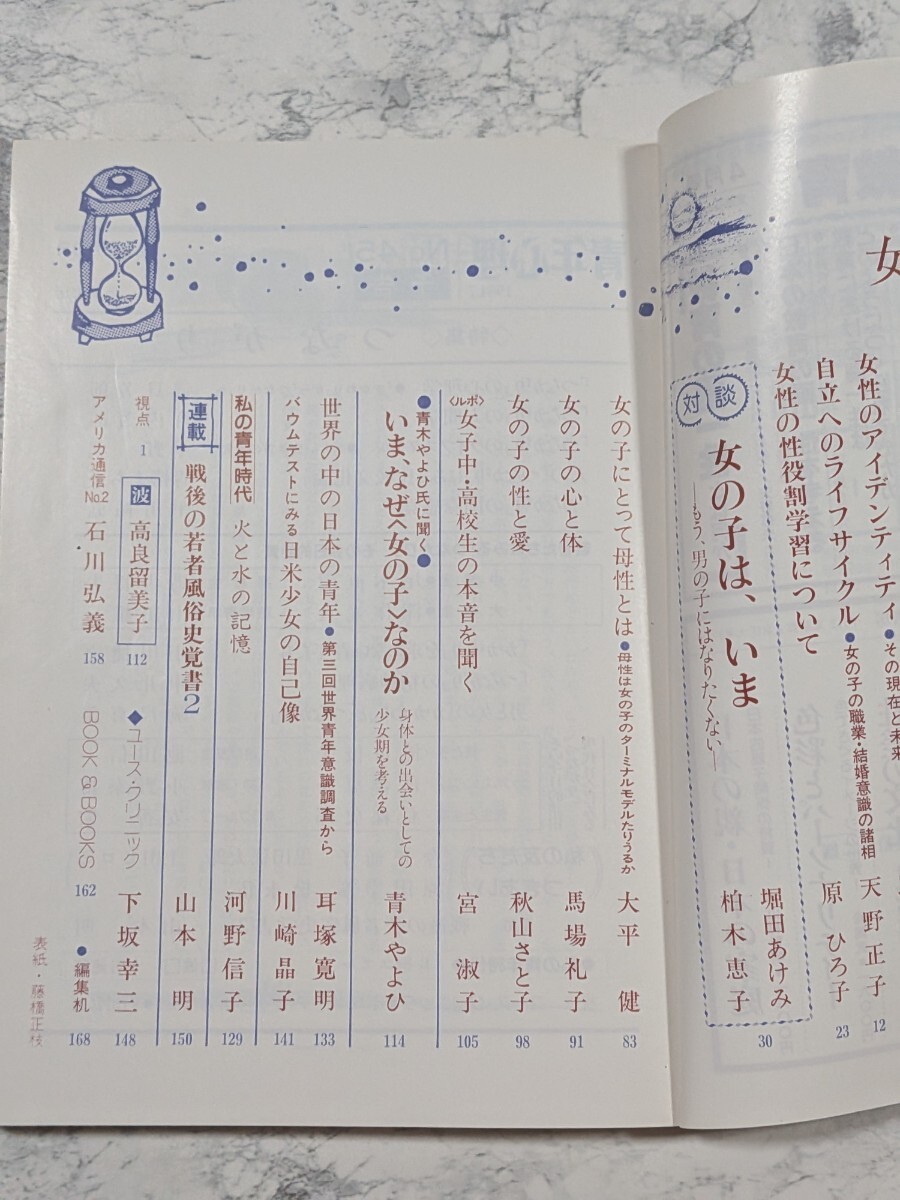 女
女性のアイデンティティ●その現在と未来
天野正子
12
自立へのライフサイクル●女の子の職業・結婚意識の諸相
原 ひろ子
23
女性の性役割学習について
対談
女の子は、いま
―もう、男の子にはなりたくない―
堀田あけみ
柏木恵子
30
女の子にとって母性とは●母性は女の子のターミナルモデルたりうるか
大平 健
83
女の子の心と体
馬場礼子
91
女の子の性と愛
秋山さと子
98
〈ルポ〉女子中・高校生の本音を聞く
宮 淑子
105
●青木やよひ氏に聞く●
いま、なぜ〈女の子〉なのか
身体との出会いとしての
少女期を考える
青木やよひ
114
世界の中の日本の青年●第三回世界青年意識調査から
耳塚寛明
133
バウムテストにみる日米少女の自己像
川崎晶子
141
私の青年時代 火と水の記憶
河野信子
129
連載 戦後の若者風俗史覚書2
山本 明
150
視点 1 波 高良留美子 112
◆ユース・クリニック
下坂幸三
148
アメリカ通信No.2 石川弘義 158
BOOK & BOOKS 162
●編集机 168
表紙・藤橋正枝